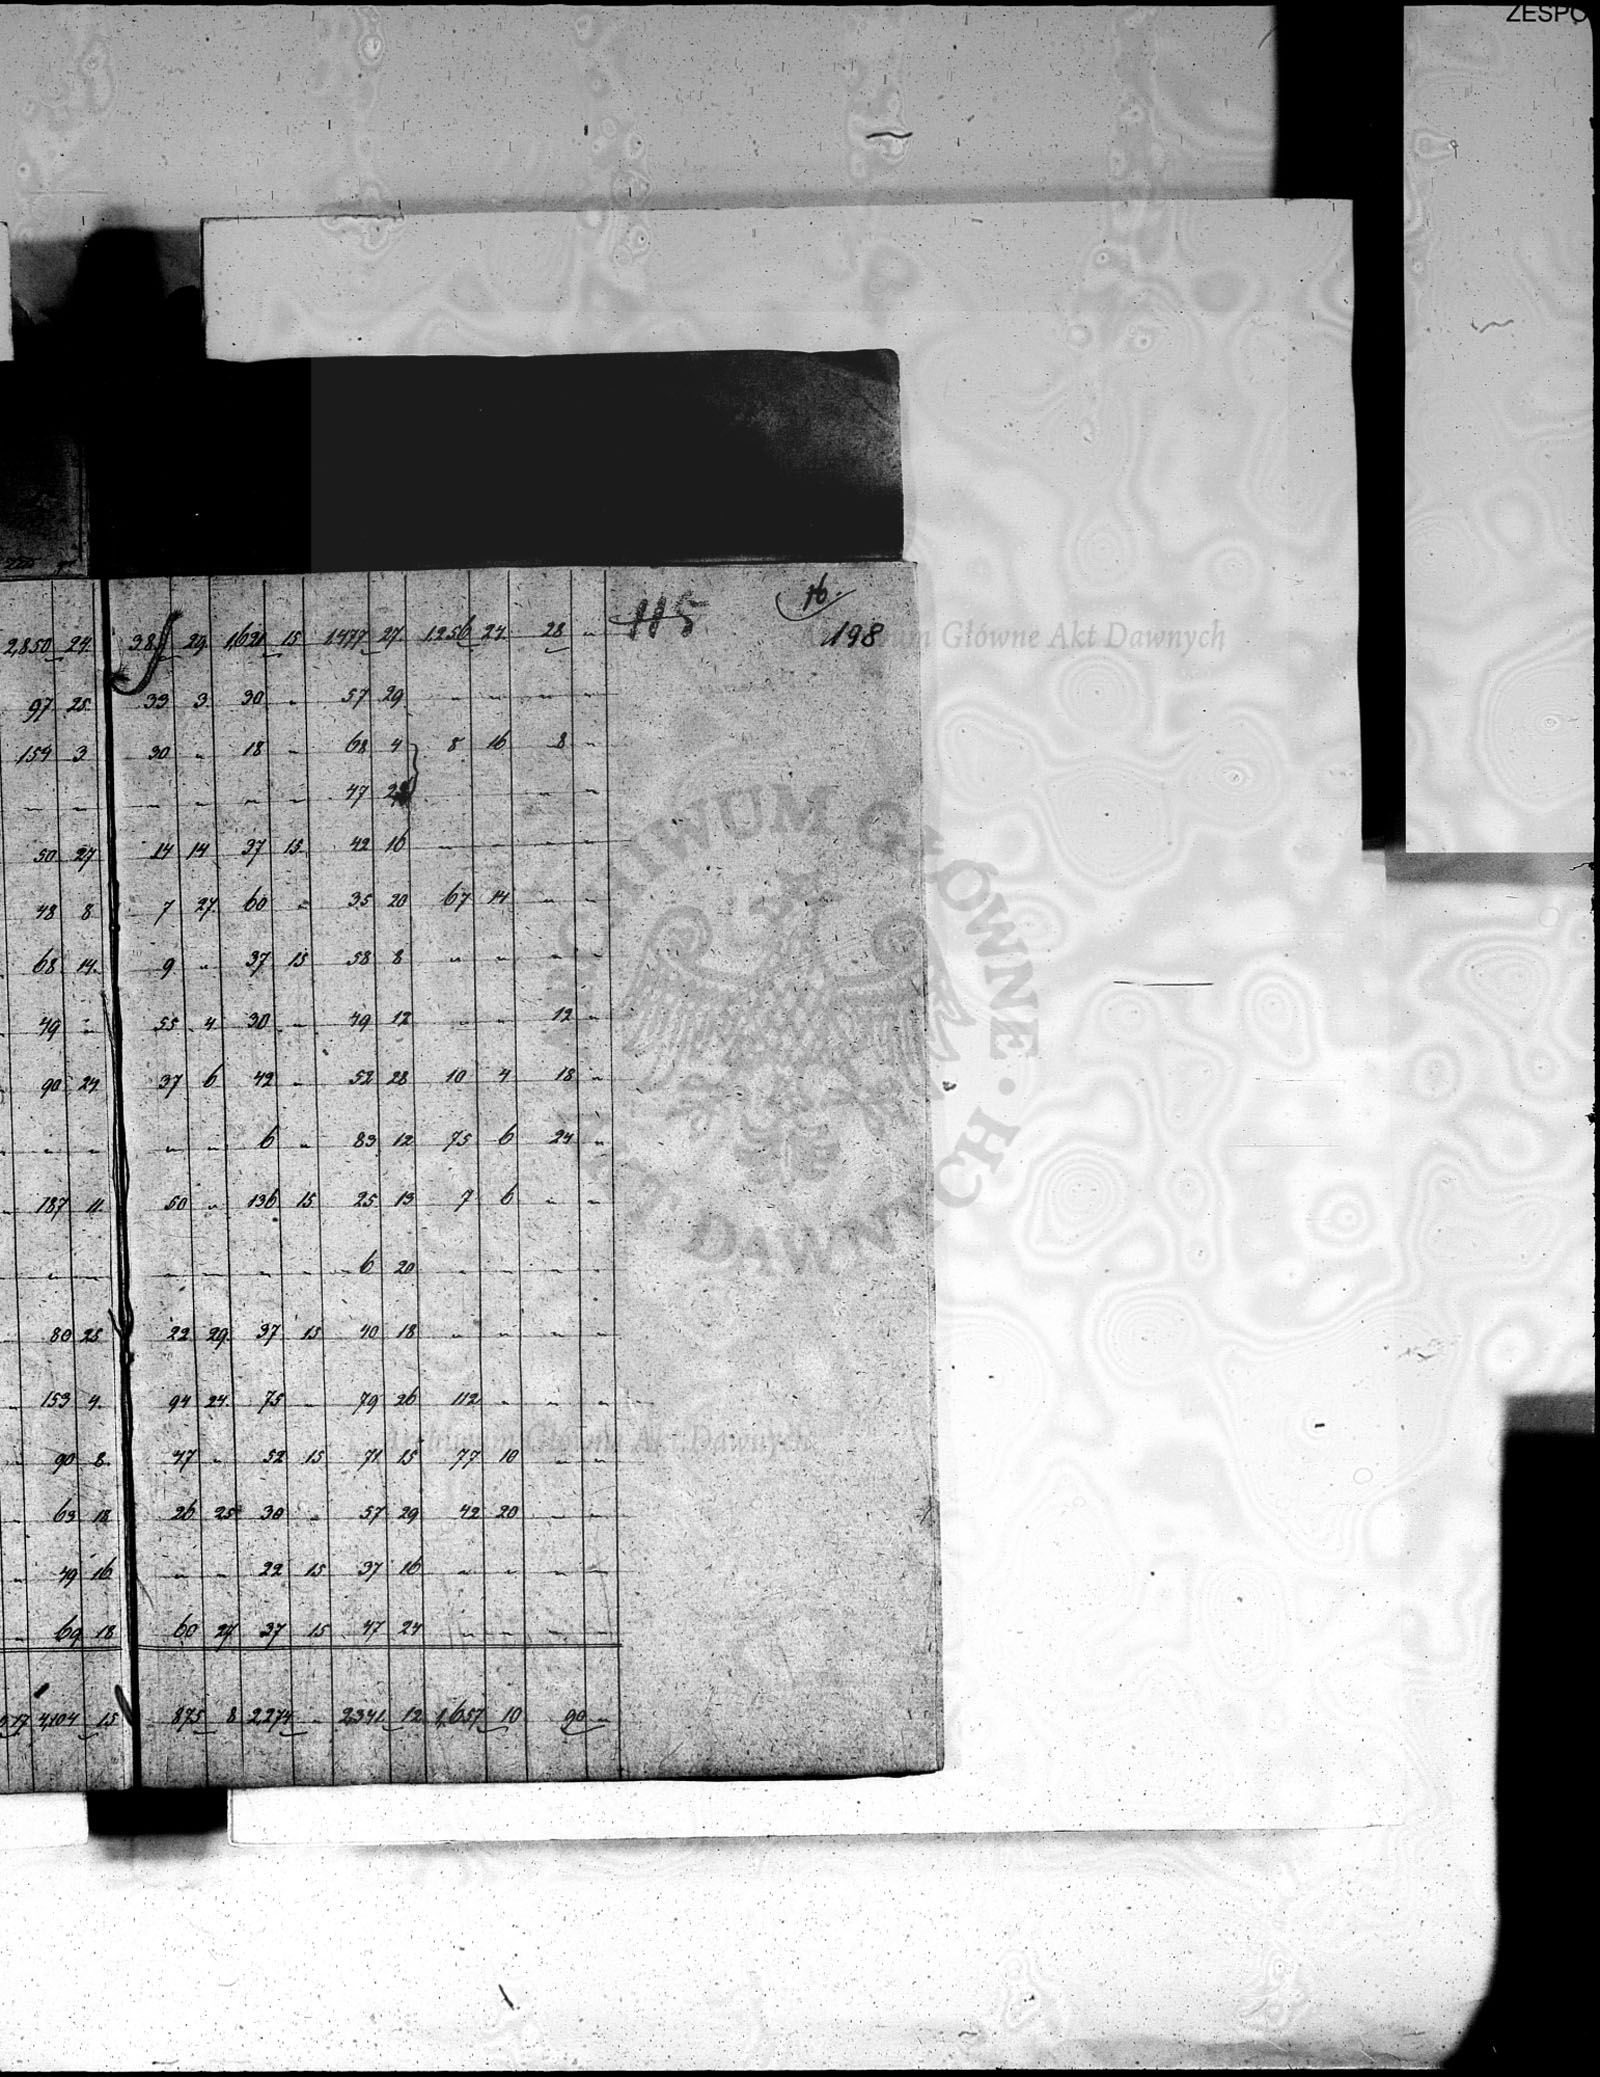 ZESPO
16.
115
198
2,850 24. 29. 1,621 15 1477 27. 1256 24 28 "
97. 25. 33 3. 30 " 57 29 " " " "
159 3 30 " 18 " 68 4 8 16 8 "
" " " " " " 47 " "
50 27 14 14 37 15. 42 16 " " " "
48 8 7 27. 60 " 35 20 67 14 " "
68 14. 9 " 37 15 58 8 " " " "
49 " 55 4 30 " 49 12 " " 12 "
90 24 37 6 42 " 52 28 10 4 18 "
" " " " 6 " 83 12 75 6 24 "
187 11. 50 " 136 15 25 13 7 6 " "
" " " " " " 6 20 " " " "
80 25 22 29. 37 15 40 18 " " " "
153 4. 94 24. 75 " 79 26 112 " " "
90 8. 47 " 52 15 71 15 77 10 " "
63 18 26 25 30 " 57 29 42 20 " "
49 16 " " 22 15 37 16 " " " "
69 18 60 27 37 15 47 24 " " " "
17 4,104 15 875 8 2,274 " 2,341 12 1,657 10 90 "
Główne Akt Dawnych
ARCHIWUM GŁÓWNE AKT DAWNYCH
Archiwum Główne Akt Dawnych